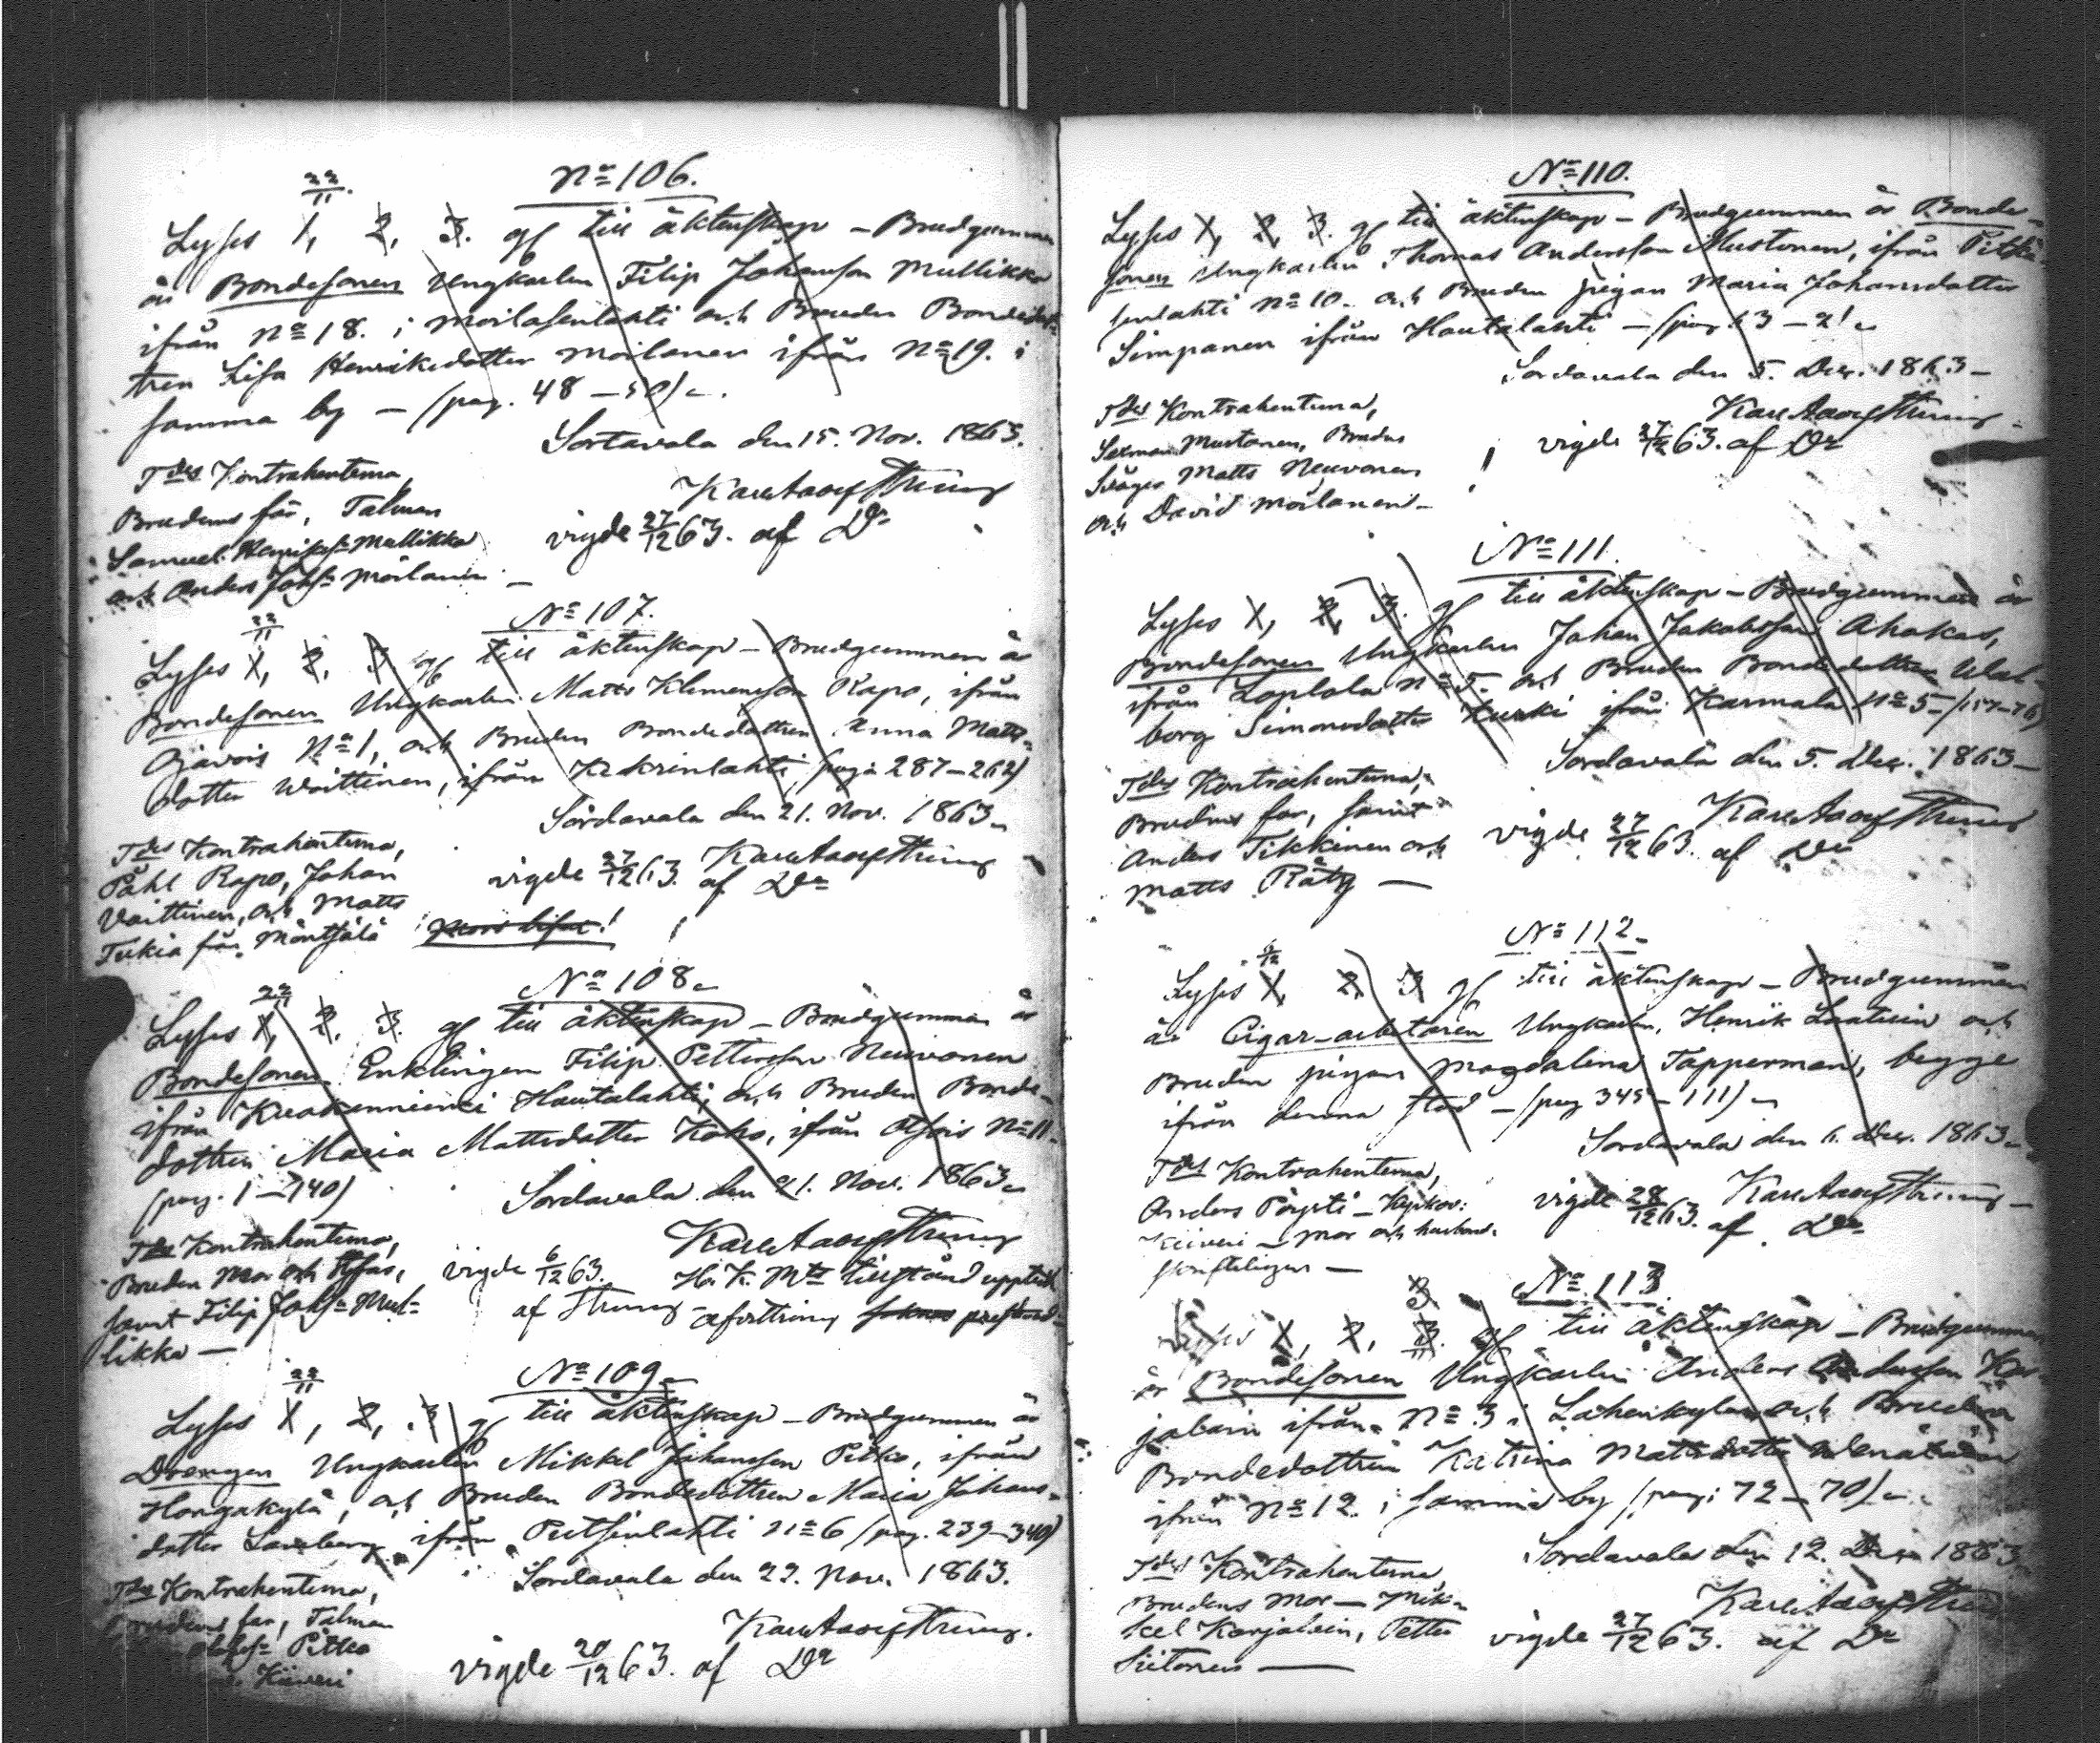 22/11.
Nº 106.
Lyses 1, 2, 3. gg till äktenskap – Brudgummen
är Bondesonen Ungkarlen Filip Johansson Mullikka
ifrån Nº 18. i Moilasenlahti och Bruden Bondedot-
tren Lisa Henriksdotter Moilanen ifrån Nº 19. i
samma by – (pag. 48 – 50)
Sortavala den 15. Nov. 1863.
Karl Adolf
Tdes Kontrahenterna,
Brudens far, Talman
Samuel Mullikka
och Anders Johs: Moilanen –
vigde 27/12 63. af Dº
Nº 107.
22/11
Lyses 1, 2, 3 gg till äktenskap – Brudgummen är
Bondesonen Ungkarlen Matts Klemensson Rapo, ifrån
Ojavois Nº 1, och Bruden Bondedottren Anna Matts-
dotter Waittinen, ifrån Kekrinlahti (pag: 287 – 262)
Sordavala den 21. Nov. 1863
Karl Adolf
Tdes Kontrahenterna,
Påhl Rapo, Johan
Vaittinen, och Matts
Tukia från Mäntsälä
vigde 27/12 63. af Dº
Nº 108
22/11
Lyses 1, 2, 3. gg till äktenskap – Brudgummen är
Bondesonen Enklingen Filip Pettersson Neuvonen
ifrån Kuokanniemi Hautalahti, och Bruden Bonde-
dottren Maria Mattsdotter Koho, ifrån Otsois Nº 11
(pag. 1 – 140)
Sordavala den 21. Nov. 1863
Karl Adolf
Tdes Kontrahenterna,
Bruden Mor och
samt Filip Johs: Mul-
likka –
vigde 6/12 63.
af
tillstånd
Nº 109
22/11
Lyses 1, 2, 3 gg till äktenskap – Brudgummen är
Drengen Ungkarlen Mikkel Johansson Pitko, ifrån
Hongakylä, och Bruden Bondedottren Maria Johans-
dotter ifrån Putsinlahti Nº 6 (pag. 239 – 340)
Sordavala den 22. Nov. 1863.
Karl Adolf
Tdes Kontrahenterna,
Brudens far, Talman
Pitko
Kiiveri
vigde 20/12 63. af Dº
Nº 110.
Lyses 1, 2, 3. gg till äktenskap – Brudgummen är Bonde-
sonen Ungkarlen Thomas Andersson Mustonen, ifrån
Nº 10. och Bruden pigan Maria Johansdotter
Simpanen ifrån Hautalahti – (pag 13 – 21
Sordavala den 5. Dec. 1863 –
Karl Adolf
Tdes Kontrahenterna,
Sexman Mustonen, Brudens
Svåger Matts Neuvonen
och David Moilanen –
vigde 27/12 63. af Dº
Nº 111.
Lyses 1, 2, 3. gg till äktenskap – Brudgummen är
Bondesonen Ungkarlen Johan Jakobsson Ahokas,
ifrån Nº 5. och Bruden Bondedottren Wal-
borg Simonsdotter Kurki ifrån Karmala Nº 5 –
Sordavala den 5. Dec. 1863 –
Karl Adolf
Tdes Kontrahenterna,
Brudens far, samt
Anders Tikkinen och
Matts Räty –
vigde 27/12 63. af Dº
Nº 112
6/12
Lyses 1, 2, 3 gg till äktenskap – Brudgummen
är Cigar-arbetaren Ungkarlen, Henrik och
Bruden pigan Magdalena Tapperman, begge
ifrån denna stad – (pag 345 – 111)
Sordavala den 6. Dec. 1863
Karl Adolf
Tdes Kontrahenterna,
Anders
Kiiveri – mor och
skriftligen –
vigde 28/12 63. af Dº
Nº 113.
Lyses 1, 2, 3. gg till äktenskap – Brudgummen
är Bondesonen Ungkarlen Anders Andersson Kar-
jalain ifrån Nº 3 i och Bruden
Bondedottren Katrina Mattsdotter
ifrån Nº 12. i samma by (pag: 72 – 70)
Sordavala den 12. Dec 1863
Karl Adolf
Tdes Kontrahenterna
Brudens Mor – Mik-
kel Karjalain, Petter
Siitonen –
vigde 27/12 63. af Dº